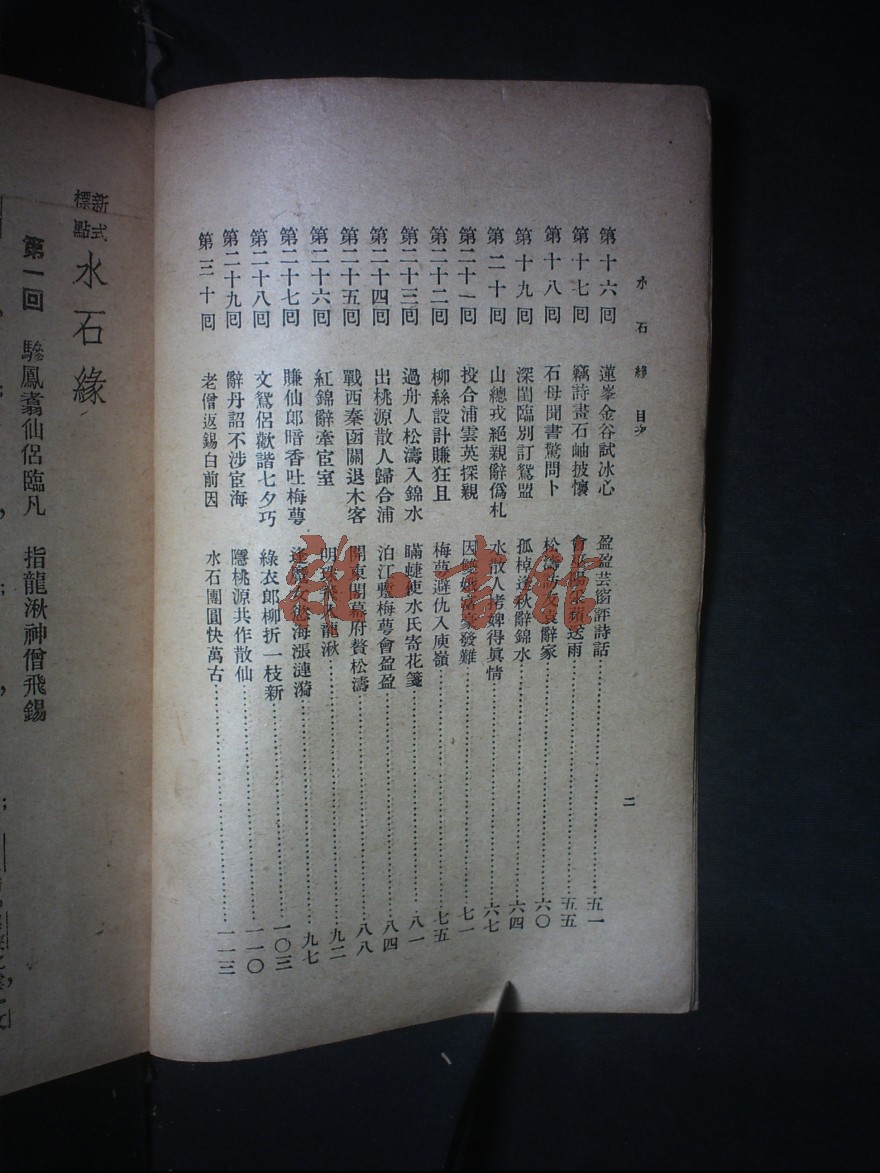 水石緣目次
二
第十六囘 蓮峯金谷試冰心 盈盈芸窗評詩話 五一
第十七囘 竊詩畫石岫披懷 送雨 五五
第十八囘 石母聞書驚問卜 松濤 友袁辭家 六〇
第十九囘 深閨臨別訂鴛盟 孤棹逢秋辭錦水 六四
第二十囘 山總戎絕親辭僞札 水散人拷婢得眞情 六七
第二十一囘 投合浦雲英探親 因 發難 七一
第二十二囘 柳絲設計賺狂且 梅萼避仇入庾嶺 七五
第二十三囘 過舟人松濤入錦水 瞞蜨使水氏寄花箋 八一
第二十四囘 出桃源散人歸合浦 泊江 梅萼會盈盈 八四
第二十五囘 戰西秦函關退木客 開東閣幕府贅松濤 八八
第二十六囘 紅錦辭牽宦室 明珠 龍湫 九二
第二十七囘 賺仙郎暗香吐梅萼 女慾海漲漣漪 九七
第二十八囘 文鴛侶歡諧七夕巧 綠衣郎柳折一枝新 一〇三
第二十九囘 辭丹詔不涉宦海 隱桃源共作散仙 一一〇
第三十囘 老僧返錫白前因 水石團圓快萬古 一一三
新式標點 水石緣
第一囘 驂鳳翥仙侶臨凡 指龍湫神僧飛錫
書館